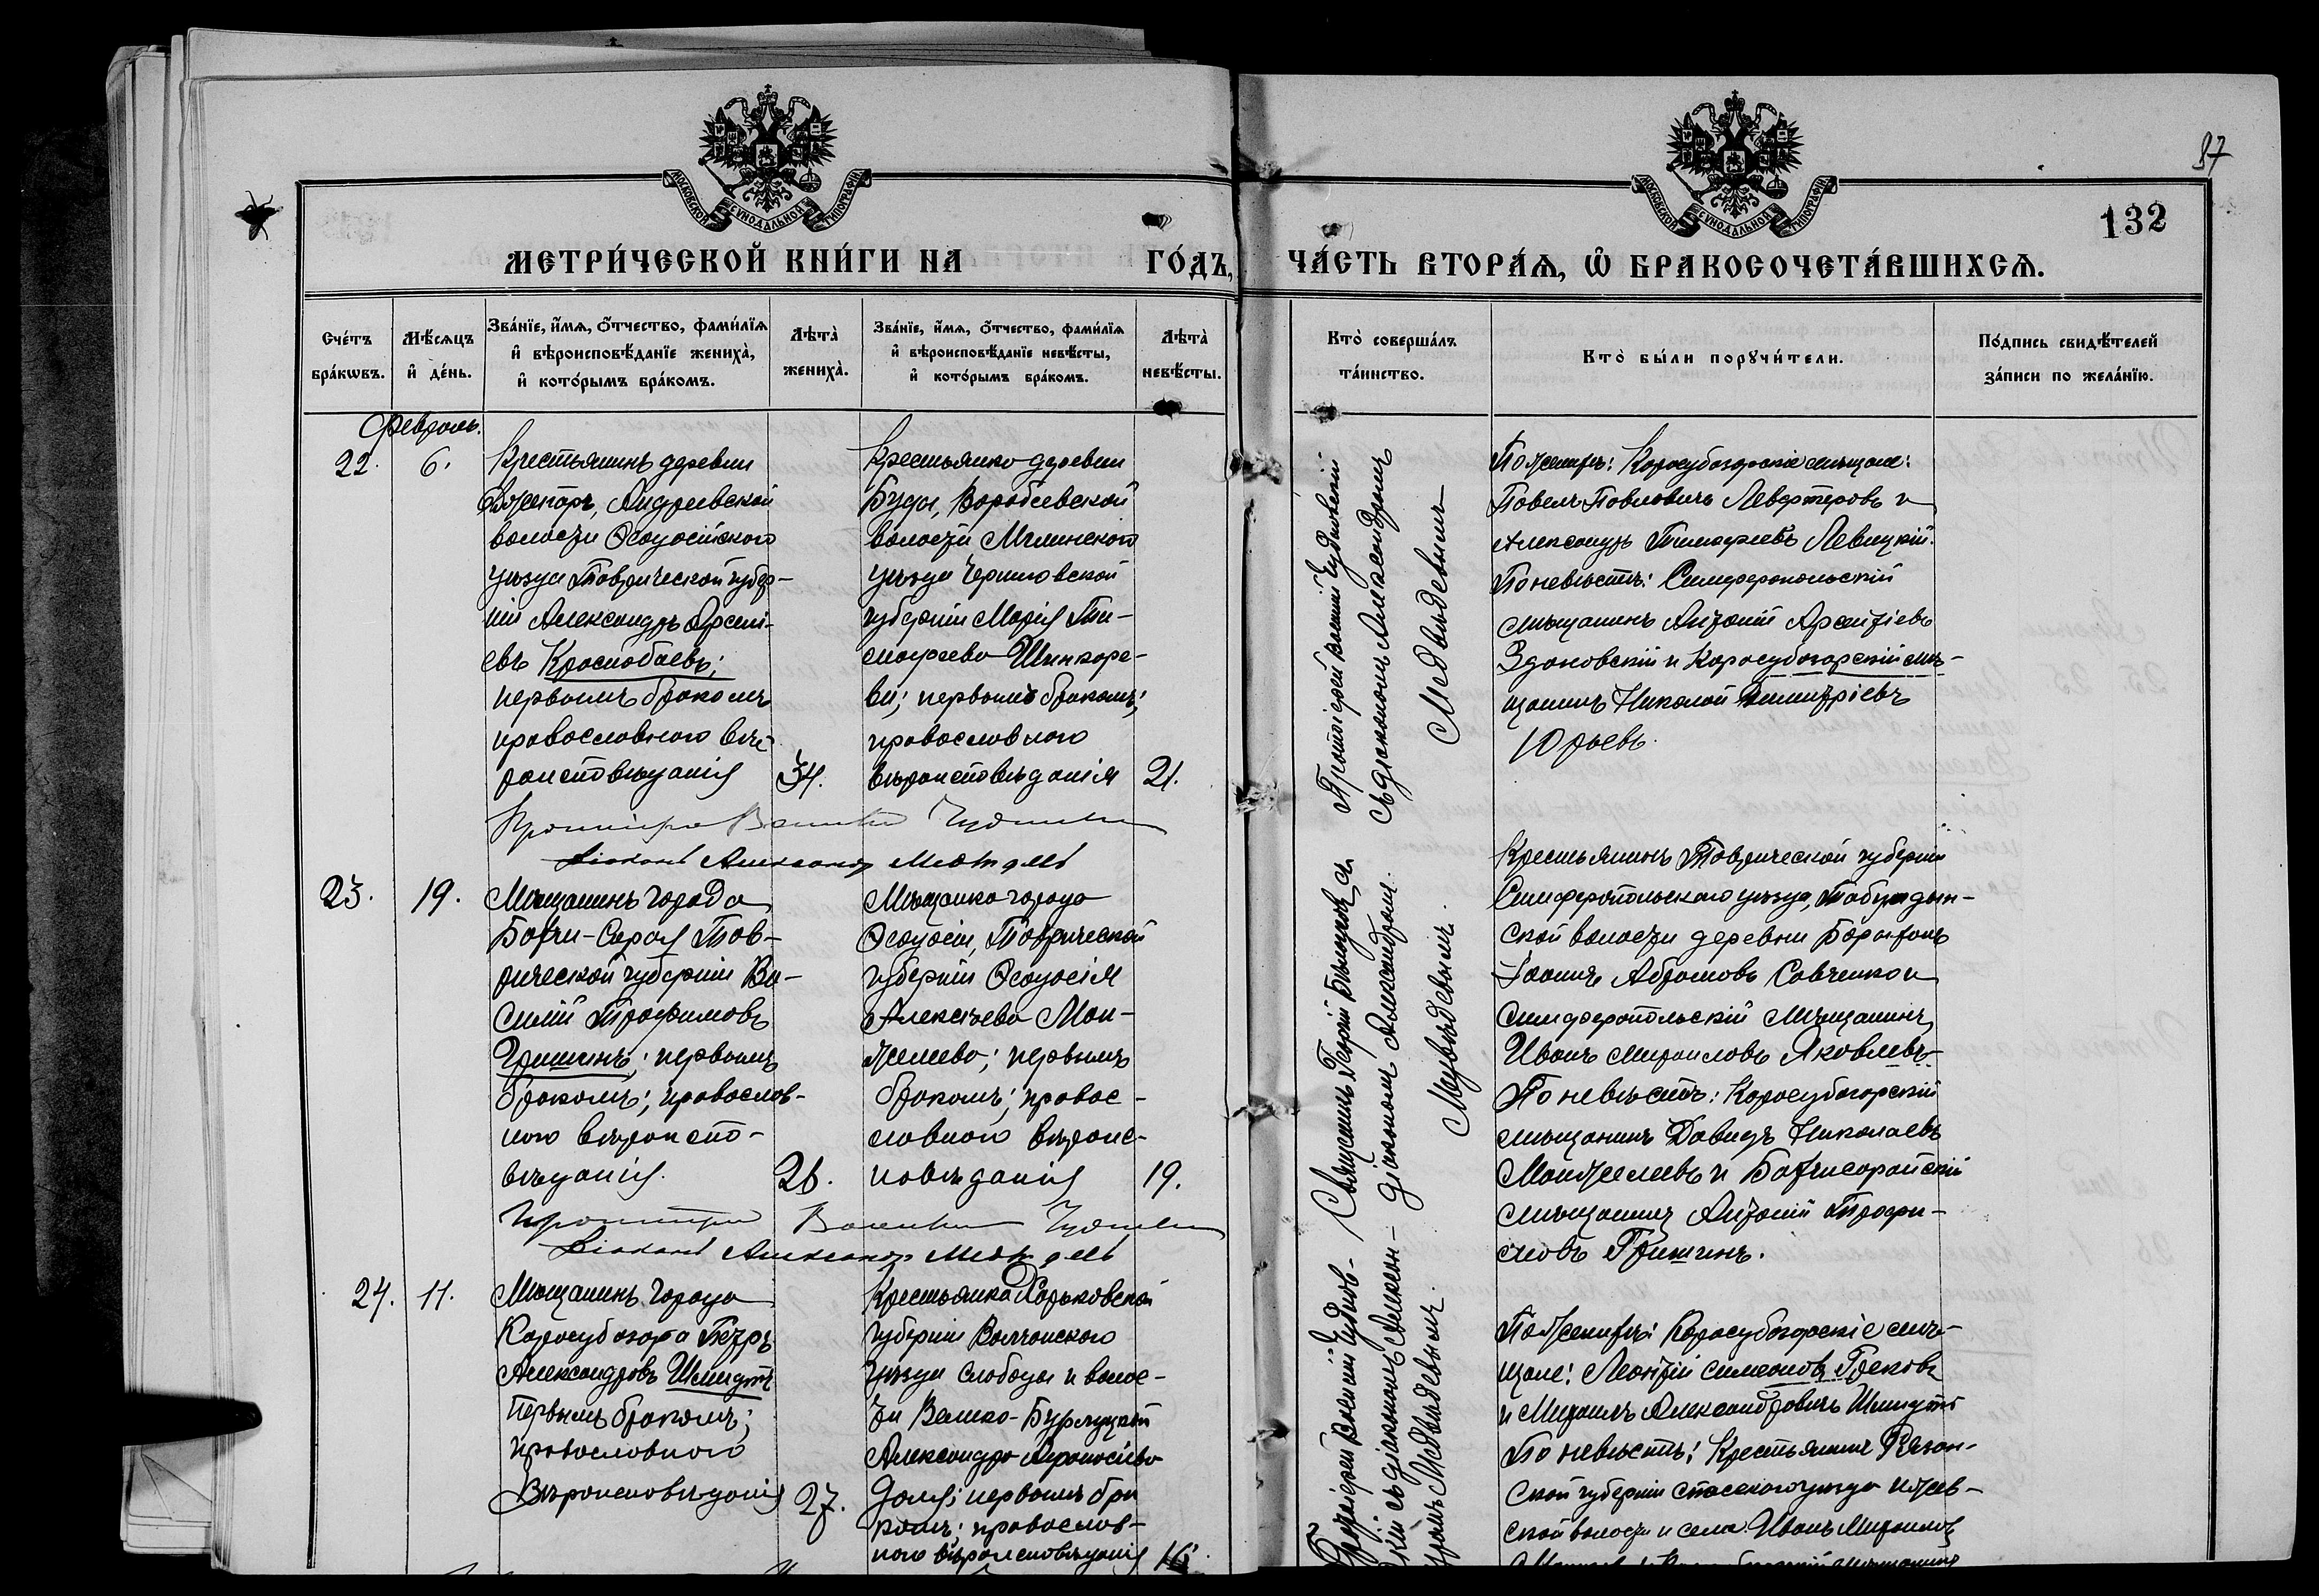 87
132
МОСКОВСКОЙ СѴНОДАЛЬНОЙ ТИПОГРАФІИ
МОСКОВСКОЙ СѴНОДАЛЬНОЙ ТИПОГРАФІИ
МЕТРИ́ЧЕСКОЙ КНИ́ГИ НА ГО́ДЪ, ЧА́СТЬ ВТОРА́Ѧ, Ѡ҆ БРАКОСОЧЕТА́ВШИХСѦ.
Сче́тъ
бра́кѡвъ.
Мѣ́сѧцъ
и҆ де́нь.
Зва́нїе, и҆́мѧ, о҆́тчество, фами́лїѧ
и҆ вѣроисповѣ́данїе жениха̀,
и҆ кото́рымъ бра́комъ.
Лѣта̀
жениха̀.
Зва́нїе, и҆́мѧ, о҆́тчество, фами́лїѧ
и҆ вѣроисповѣ́данїе невѣ́сты,
и҆ кото́рымъ бра́комъ.
Лѣта̀
невѣ́сты.
Кто̀ соверша́лъ
та́инство.
Кто̀ бы́ли порꙋчи́тели.
По́дпись свидѣ́телей
за́писи по жела́нїю.
Февраль.
22.
6.
Крестьянинъ деревни
Андреевской
волости Ѳеодосійскаго
уѣзда Таврической губер-
ніи Александръ Арсені-
евъ Краснобаевъ;
первымъ бракомъ
православнаго вѣ-
роисповѣданія
34.
Крестьянка деревни
Буды, Воробьевской
волости Мглинскаго
уѣзда Черниговской
губерніи Марія Ти-
моѳеева Шинкаре-
ва; первымъ бракомъ;
православнаго
вѣроисповѣданія
21.
Протоіерей Василій Чудновскій
съ діакономъ Александромъ
Медвѣдевымъ
По женихѣ: Карасубазарскіе мѣщане:
Павелъ Павловичъ Левтеровъ и
Александръ Тимоѳеевъ Левицкій.
По невѣстѣ: Симферопольскій
мѣщанинъ Антоній Арсентіевъ
Здановскій и Карасубазарскій мѣ-
щанинъ Николай Димитріевъ
Юрьевъ.
Діаконъ Александръ
23.
19.
Мѣщанинъ города
Бахчи-Сарая Тав-
рической губерніи Ва-
силій Трофимовъ
Гришинъ; первымъ
бракомъ; православ-
наго вѣроиспо-
вѣданія.
26.
Мѣщанка города
Ѳеодосіи, Таврической
губерніи Ѳеодосія
Алексѣева Ман-
желеева; первымъ
бракомъ; правос-
лавнаго вѣроис-
повѣданія
19.
Священникъ Георгій
діакономъ Александромъ
Медвѣдевымъ.
Крестьянинъ Таврической губерніи
Симферопольскаго уѣзда, Табулдын-
ской волости деревни
Іоаннъ Абрамовъ Савченко и
Симферопольскій мѣщанинъ
Иванъ Михаиловъ Яковлевъ.
По невѣстѣ: Карасубазарскій
мѣщанинъ Давидъ Николаевъ
Манжелеевъ и Бахчисарайскій
мѣщанинъ Антоній Трофи-
мовъ Гришинъ.
Діаконъ Александръ
24.
11.
Мѣщанинъ города
Карасубазара Петръ
Александровъ Шмидтъ
первымъ бракомъ;
православнаго
вѣроисповѣданія
27.
Крестьянка Харьковской
губерніи Волчанскаго
уѣзда слободы и волос-
ти Велико-Бурлуцкой
Александра Аѳанасіева
первымъ бра
комъ; православ-
наго вѣроисповѣданія
16.
Протоіерей Василій Чуднов-
скій съ діакономъ Александ-
ромъ Медвѣдевымъ.
По женихѣ: Карасубазарскіе мѣ-
щане: Леонтій Симеоновъ Грековъ
и Михаилъ Александровичъ Шмидтъ
По невѣстѣ: Крестьянинъ Рязан-
ской губерніи Спасскаго уѣзда Ижев-
ской волости и села Иванъ Михаиловъ